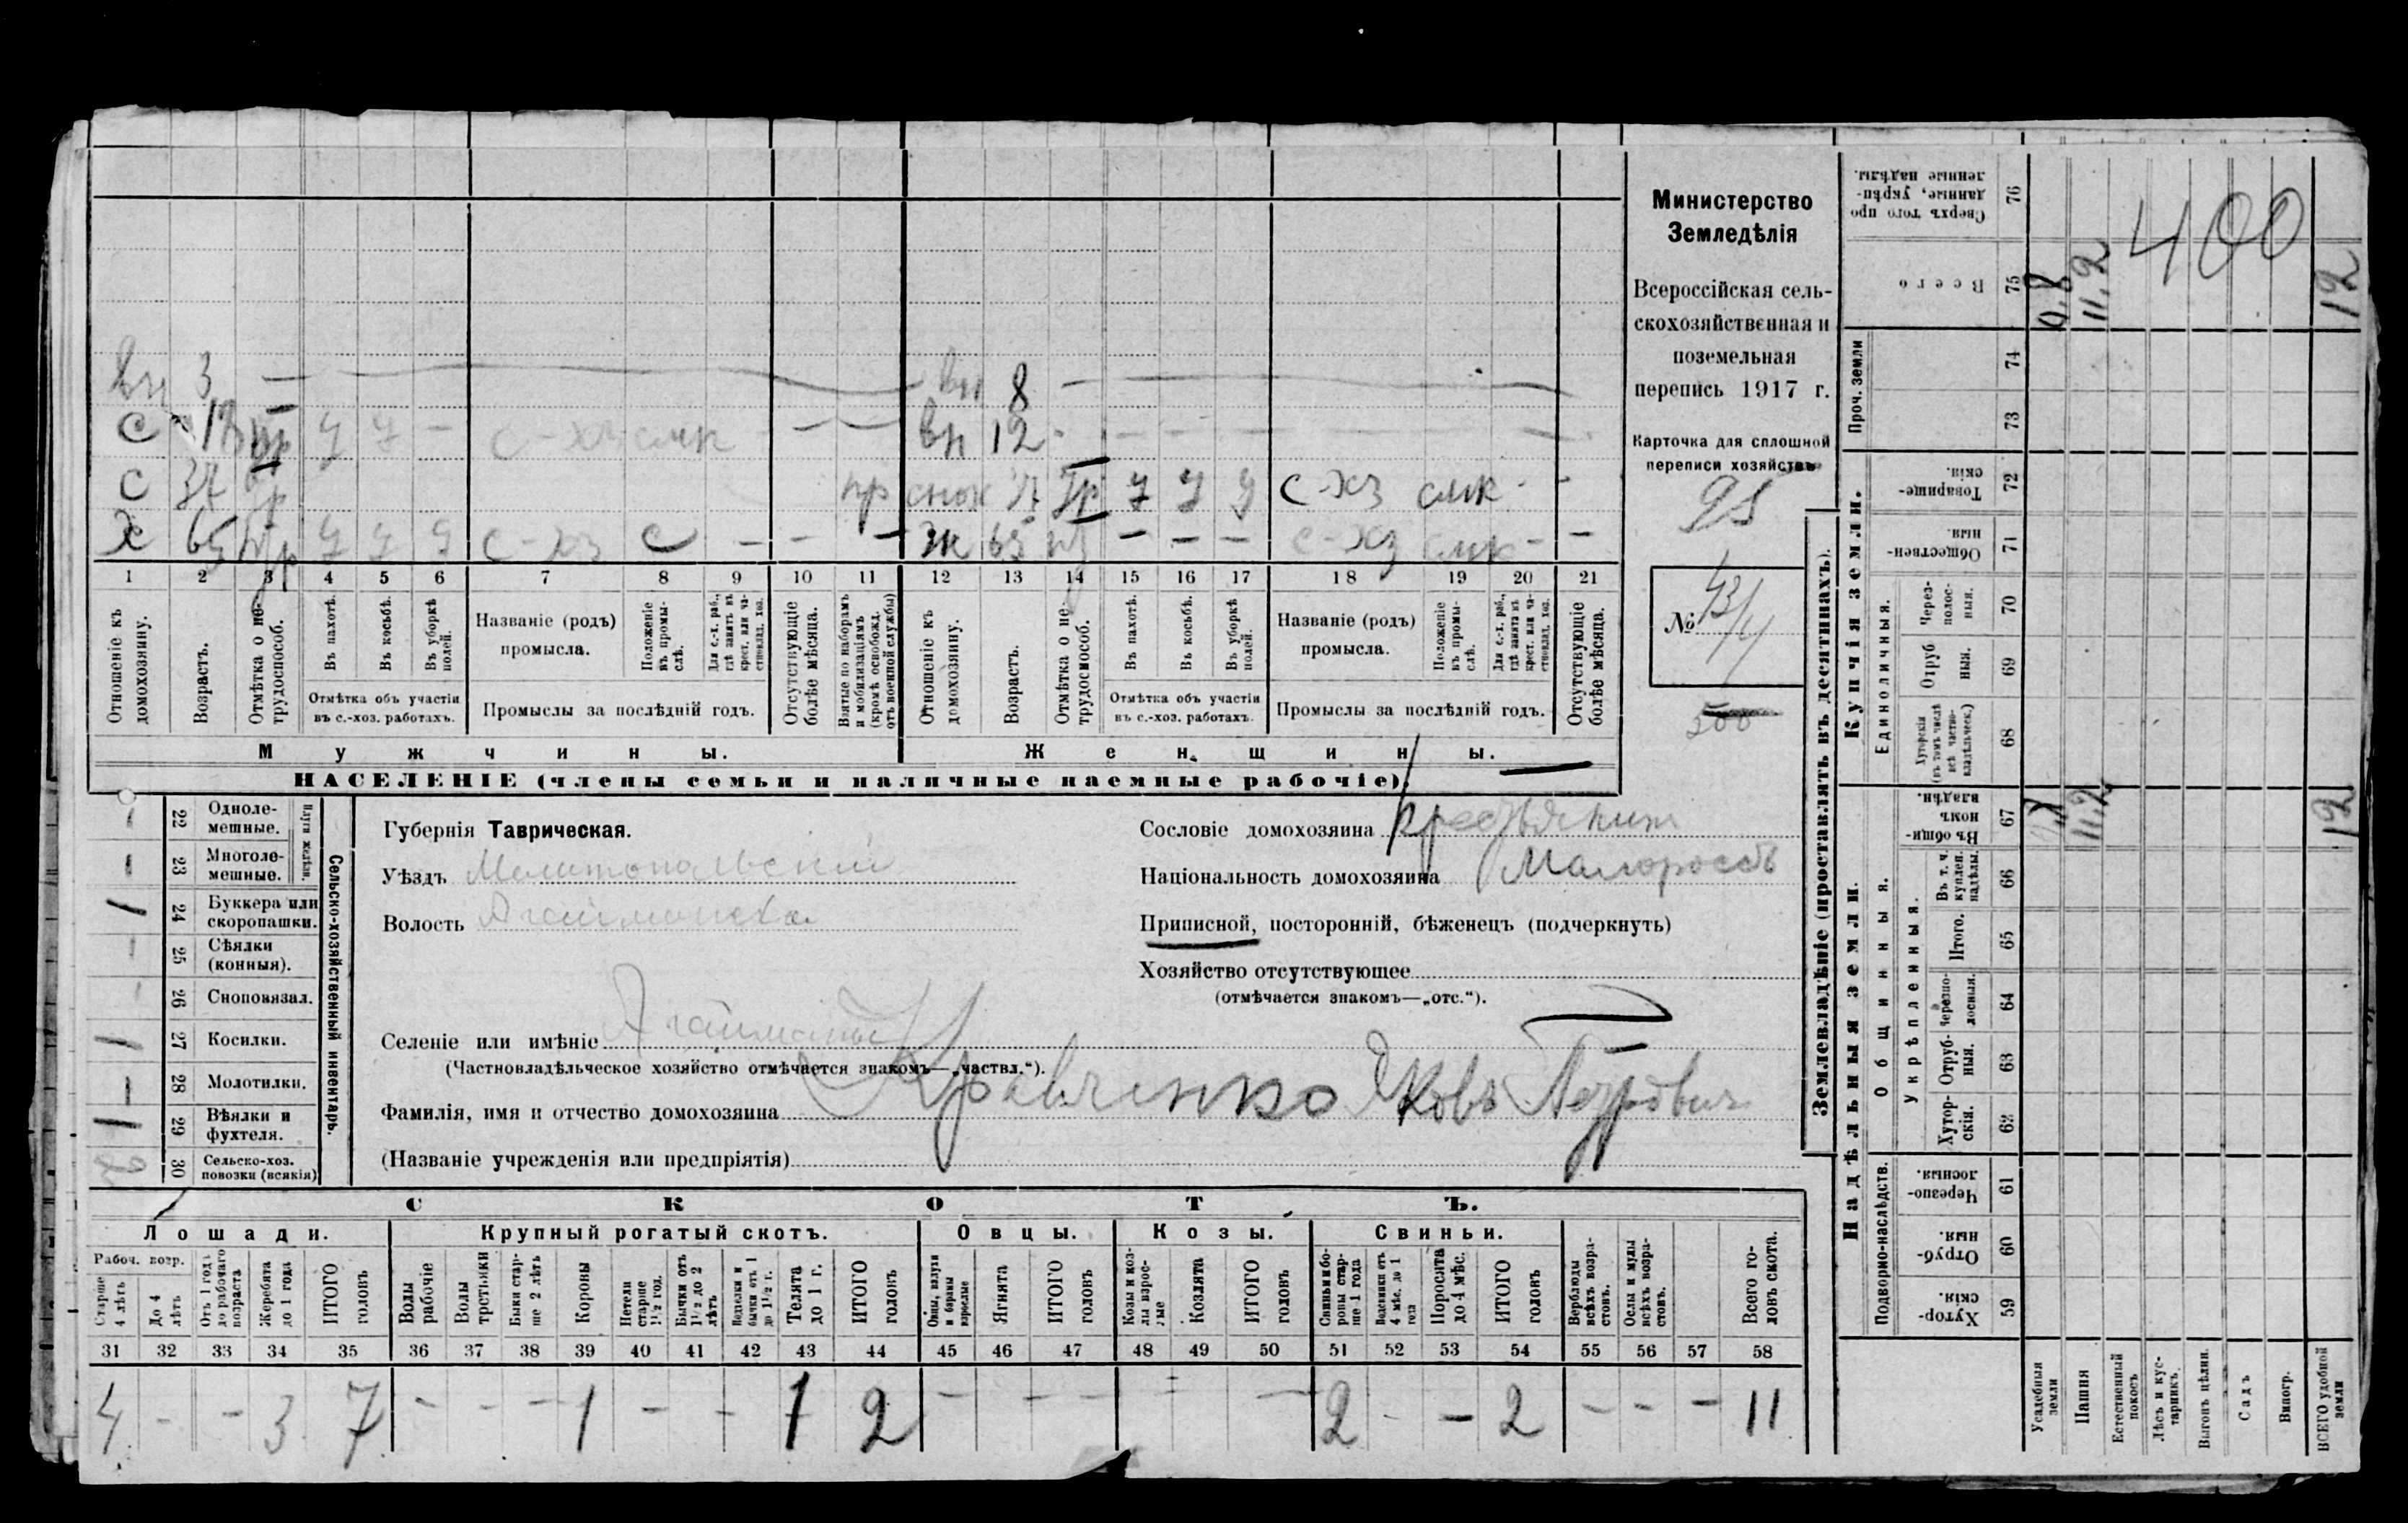 вн 3 — — вн 8 —
с 13 тр у у — с-хз смк — — — вн 12 - — — — — — —
с 37 тр пр снох 37 тр у у у с-хз смк - -
х 65 у у у с-хз с — — — ж 65 — — — с-хз смк — —
1 2 3 4 5 6 7 8 9 10 11 12 13 14 15 16 17 18 19 20 21
Отношеніе къ домохозяину.
Возрастъ.
Отмѣтка о нетрудоспособ.
Въ пахотѣ.
Въ косьбѣ.
Въ уборкѣ полей.
Отмѣтка объ участіи въ с.-хоз. работахъ.
Названіе (родъ) промысла.
Положеніе въ промыслѣ.
Для с.-х. раб., гдѣ занятъ въ крест. или частновлад. хоз.
Промыслы за послѣдній годъ.
Отсутствующіе болѣе мѣсяца.
Взятые по наборамъ и мобилизаціямъ (кромѣ освобожд. отъ военной службы)
Отношеніе къ домохозяину.
Возрастъ.
Отмѣтка о нетрудоспособ.
Въ пахотѣ.
Въ косьбѣ.
Въ уборкѣ полей.
Отмѣтка объ участіи въ с.-хоз. работахъ.
Названіе (родъ) промысла.
Положеніе въ промыслѣ.
Для с.-х. раб., гдѣ занята въ крест. или частновлад. хоз.
Промыслы за послѣдній годъ.
Отсутствующіе болѣе мѣсяца.
Мужчины.
Женщины.
НАСЕЛЕНІЕ (члены семьи и наличные наемные рабочіе).
Министерство
Земледѣлія
Всероссійская сель-
скохозяйственная и
поземельная
перепись 1917 г.
Карточка для сплошной
переписи хозяйствъ
95
№ 43/4
500
Сельско-хозяйственный инвентарь.
Плуги желѣзн.
22 Одноле-мешные.
23 Многоле-мешные.
24 Буккера или скоропашки. 1
25 Сѣялки (конныя).
26 Сноповязал.
27 Косилки. 1
28 Молотилки. —
29 Вѣялки и фухтеля. 1
30 Сельско-хоз. повозки (всякія) 2
Губернія Таврическая.
Уѣздъ Мелитопольскій
Волость Агайманска
Селеніе или имѣніе Агайманы
(Частновладѣльческое хозяйство отмѣчается знакомъ—„частвл.“).
Фамилія, имя и отчество домохозяина Кравченко Яковъ Петровичъ
(Названіе учрежденія или предпріятія)
Сословіе домохозяина крестьянинъ
Національность домохозяина Малороссъ
Приписной, посторонній, бѣженецъ (подчеркнуть)
Хозяйство отсутствующее
(отмѣчается знакомъ—„отс.“).
СКОТЪ.
Лошади.
Крупный рогатый скотъ.
Овцы.
Козы.
Свиньи.
Рабоч. возр.
Старше 4 лѣтъ
До 4 лѣтъ
Отъ 1 года до рабочаго возраста
Жеребята до 1 года
ИТОГО головъ
Волы рабочіе
Волы третьяки
Быки старше 2 лѣтъ
Коровы
Нетели старше 1½ год.
Бычки отъ 1½ до 2 лѣтъ
Неделки и бычки отъ 1 до 1½ г.
Телята до 1 г.
ИТОГО головъ
Овцы, валухи и бараны взрослые
Ягнята
ИТОГО головъ
Козы и козлы взрослые
Козлята
ИТОГО головъ
Свиньи и боровы старше 1 года
Подсвинки отъ 4 мѣс. до 1 года
Поросята до 4 мѣс.
ИТОГО головъ
Верблюды всѣхъ возрастовъ.
Ослы и мулы всѣхъ возрастовъ.
Всего головъ скота.
31 32 33 34 35 36 37 38 39 40 41 42 43 44 45 46 47 48 49 50 51 52 53 54 55 56 57 58
4 - - 3 7 - - — 1 - - 1 2 — — — = — 2 - — 2 — — — 11
Землевладѣніе (проставлять въ десятинахъ).
Надѣльныя земли.
Купчія земли.
Проч. земли
Подворно-наслѣдств.
Общинныя.
Укрѣпленныя.
Единоличныя.
Сверхъ того проданные, укрѣпленные надѣлы. 76
Всего 75
74
73
Товарищескія. 72
Общественныя 71
Черезполосныя. 70
Отрубныя. 69
Хуторскія (въ томъ числѣ всѣ частновладѣльческ.) 68
Въ общинномъ владѣн. 67
Въ т. ч. куплен. надѣлы. 66
Итого. 65
Черезполосныя. 64
Отрубныя. 63
Хуторскія. 62
Черезполосныя 61
Отрубныя. 60
Хуторскія. 59
0,8 11,2 400 12
11,2 12
Усадебныя земли
Пашня
Естественный покосъ
Лѣсъ и кустарникъ.
Выгонъ цѣлин.
Садъ
Виногр.
ВСЕГО удобной земли